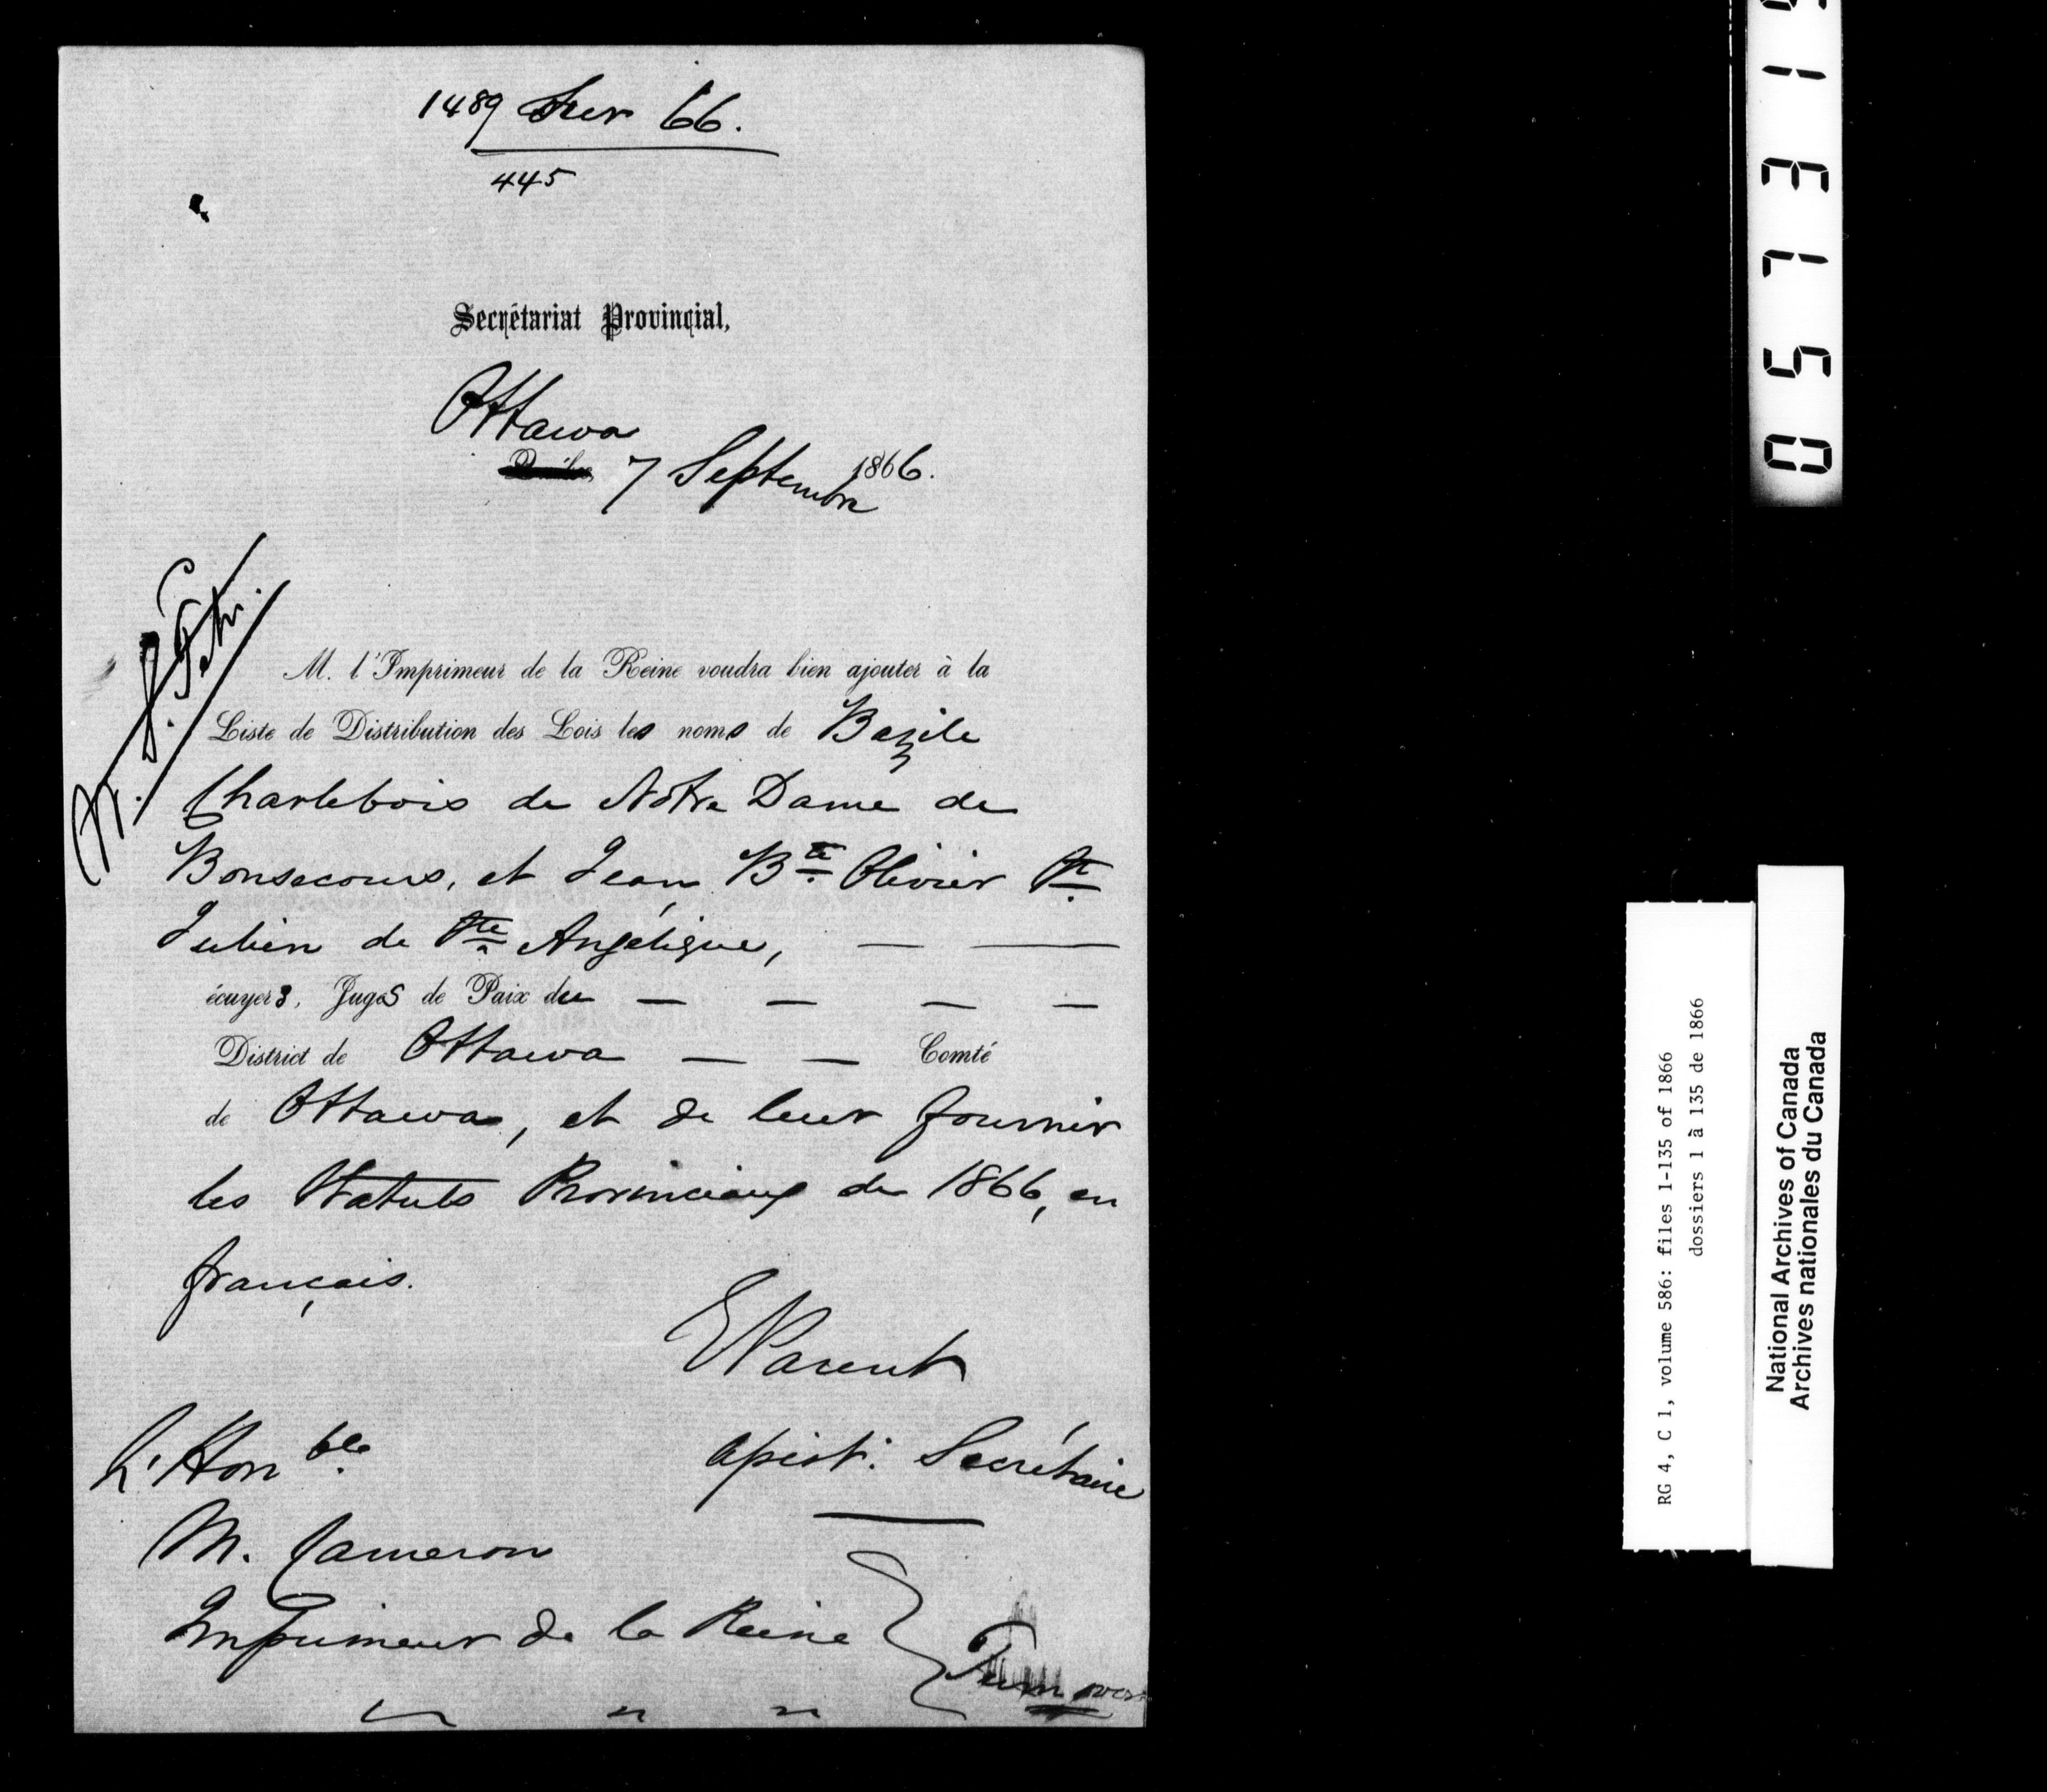 1489 Sur 66.
445
Secrétariat Provincial,
Ottawa
7 Septembre 1866.
M. l'Imprimeur de la Reine voudra bien ajouter à la
Liste de Distribution des Lois les noms de Bazile
Charlebois de Notre Dame de
Bonsecours, et Jean Bte Olivier St
Julien de Ste Angélique, — —
écuyers, Juges de Paix du — — — —
District de Ottawa — — Comté
de Ottawa, et de leur fournir
les Statuts Provinciaux de 1866, en
français.
E Parent
Assist. Secrétaire
L'Honble
M. Cameron
Imprimeur de la Reine
Turn over
RG 4, C 1, volume 586: files 1-135 of 1866
dossiers 1 à 135 de 1866
National Archives of Canada
Archives nationales du Canada